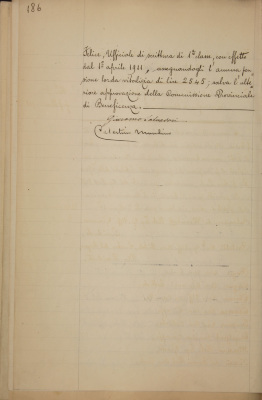 186
Felice, Ufficiale di scrittura di 1ª classe, con effetto
dal 1º aprile 1911, assegnandogli l'annua pen-
sione lorda vitalizia di lire 2545, salva l'ulte-
riore approvazione della Commissione Provinciale
di Beneficenza.
Giacomo